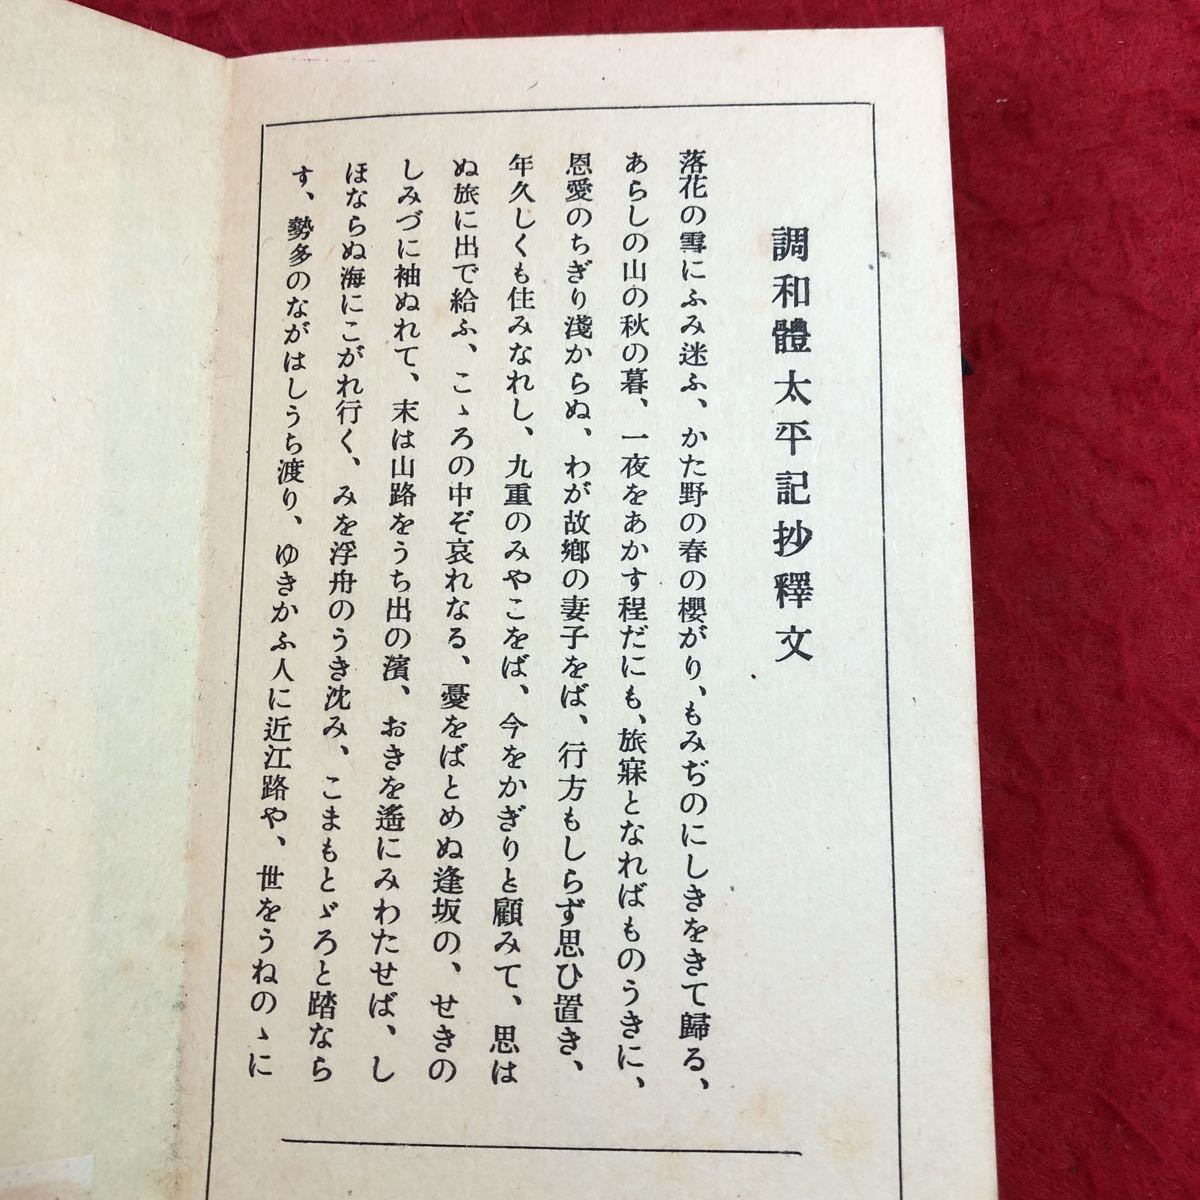 調和體太平記抄釋文
落花の雪にふみ迷ふ、かた野の春の櫻がり、もみぢのにしきをきて歸る、
あらしの山の秋の暮、一夜をあかす程だにも、旅寐となればものうきに、
恩愛のちぎり淺からぬ、わが故鄕の妻子をば、行方もしらず思ひ置き、
年久しくも住みなれし、九重のみやこをば、今をかぎりと顧みて、思は
ぬ旅に出で給ふ、こゝろの中ぞ哀れなる、憂をばとめぬ逢坂の、せきの
しみづに袖ぬれて、末は山路をうち出の濱、おきを遙にみわたせば、し
ほならぬ海にこがれ行く、みを浮舟のうき沈み、こまもとゞろと踏なら
す、勢多のながはしうち渡り、ゆきかふ人に近江路や、世をうねのゝに